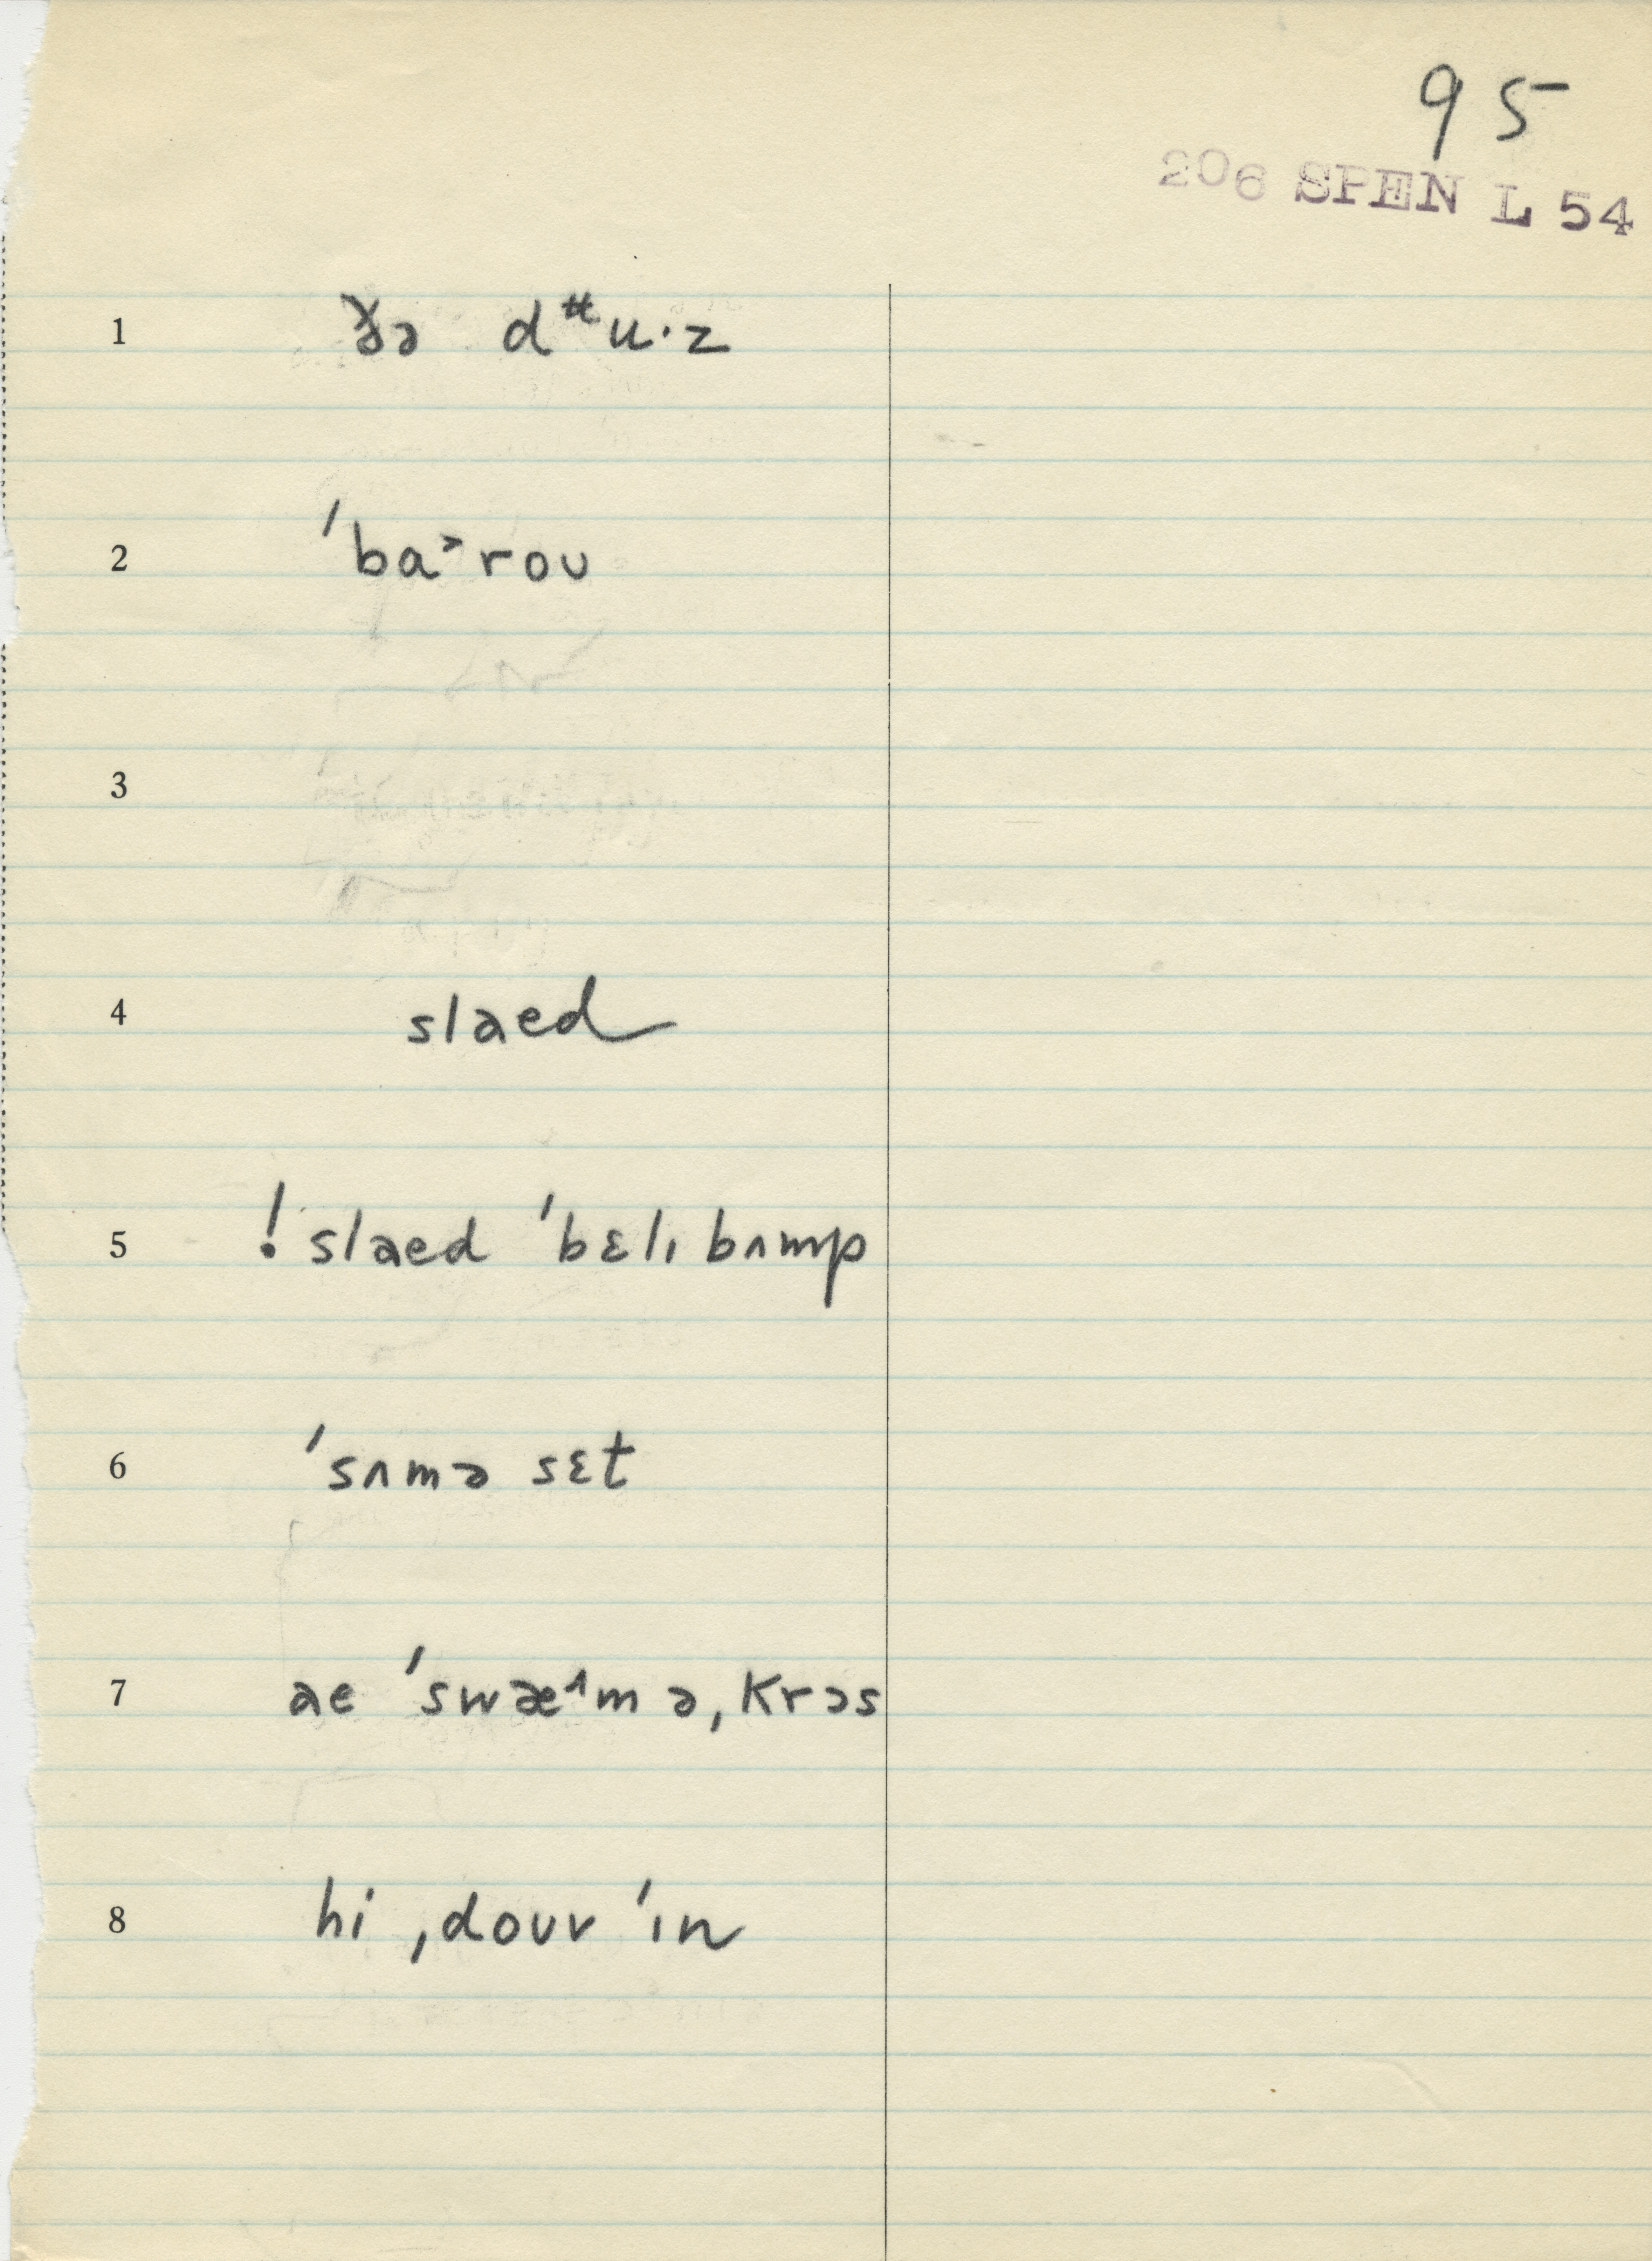 95
206 SPEN L 54
1 ðə dᵘ̵u·z
2 ˈba˃roʊ
3
4 slaed
5 ! slaed ˈbɛlɪ bʌmp
6 ˈsʌmə sɛt
7 ae ˈswæ^m ə ˌkrɔs
8 hi ˌdoʊv ˈɪn